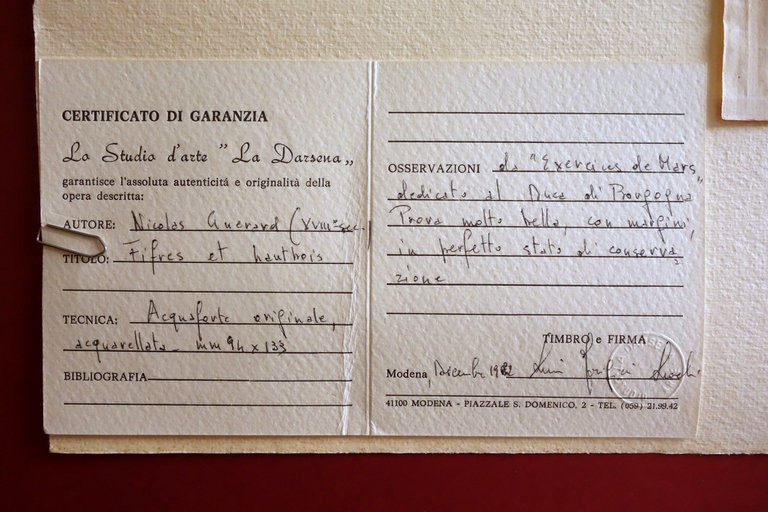 CERTIFICATO DI GARANZIA
Lo Studio d'arte "La Darsena„
garantisce l'assoluta autenticitá e originalità della
opera descritta:
AUTORE: Nicolas Guerard (XVIIIº sec.
TITOLO: Fifres et hautbois
TECNICA: Acquaforte originale,
acquarellata - mm 94 x 133
BIBLIOGRAFIA
OSSERVAZIONI da "Exercices de Mars"
dedicato al Duca di Borgogna
Prova molto bella, con margini,
in perfetto stato di conserva
zione
TIMBRO e FIRMA
Modena, Dicembre
41100 MODENA - PIAZZALE S. DOMENICO, 2 - TEL. (059) 21.99.42